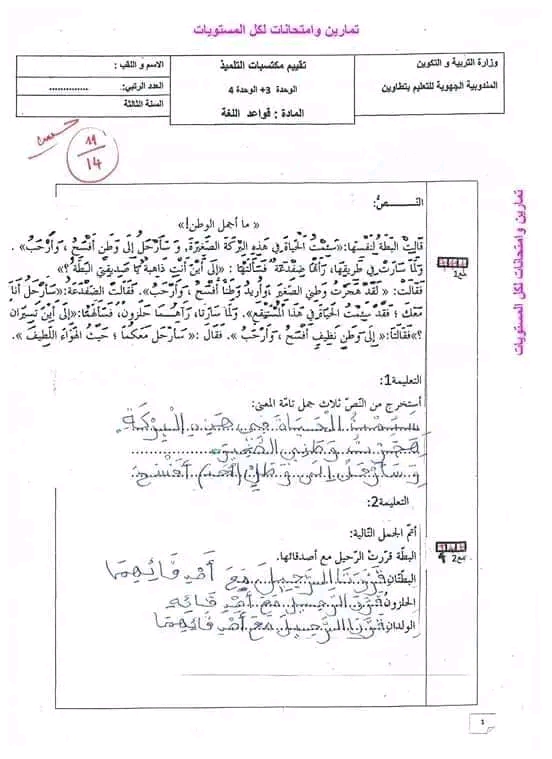 تمارين وامتحانات لكل المستويات
وزارة التربية و التكوين
المندوبية الجهوية للتعليم بتطاوين
تقييم مكتسبات التلميذ
الوحدة 3+ الوحدة 4
المادة : قواعد اللغة
الاسم و اللقب :
العدد الرتبي: ..............
السنة الثالثة
19
14
تمارين وامتحانات لكل المستويات
النــــص:
« ما أجمل الوطن!»
قالت البطة لنفسها:«سئمت الحياة في هذه البركة الصغيرة, و سأرحل إلى وطن أفسح ، وأرحب» .
ولما سارت في طريقها، رأتها ضفدعة فسألتها : «إلى أين أنت ذاهبة يا صديقتي البطة ؟»
فقالت: « لقد هجرت وطني الصغير وأريد وطنا أفسح ، وأرحب». فقالت الضفدعة:«سأرحل أنا
معك ؛ فقد سئمت الحياة في هذا المستنقع». ولما سارتا، رآهما حلزون، فسألهما:«إلى أين تسيران
؟»فقالتا: «إلى وطن نظيف أفسح ، وأرحب» . فقال :« سأرحل معكما ؛ حيث الهواء اللطيف ».
مع1
التعليمة1:
أستخرج من النص ثلاث جمل تامة المعنى:
سئمت الحياة في هذه البركة
هجرت وطني الصغير
و سأرحل إلى وطن أفسح
التعليمة2:
أتم الجمل التالية:
مع2
البطة قررت الرحيل مع أصدقائها.
البطتان قررتا الرحيل مع أصدقائهما
الحلزون قرر الرحيل مع أصدقائه
الولدان قررا الرحيل مع أصدقائهما
1